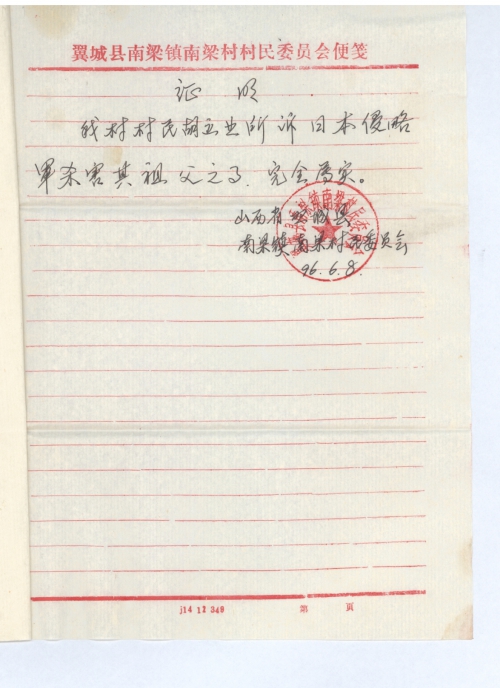 翼城县南梁镇南梁村村民委员会便笺
证 明
我村村民胡玉业所诉日本侵略
军杀害其祖父之事，完全属实。
山西省翼城县
南梁镇南梁村委员会
96.6.8.
j14 12 349 第 页